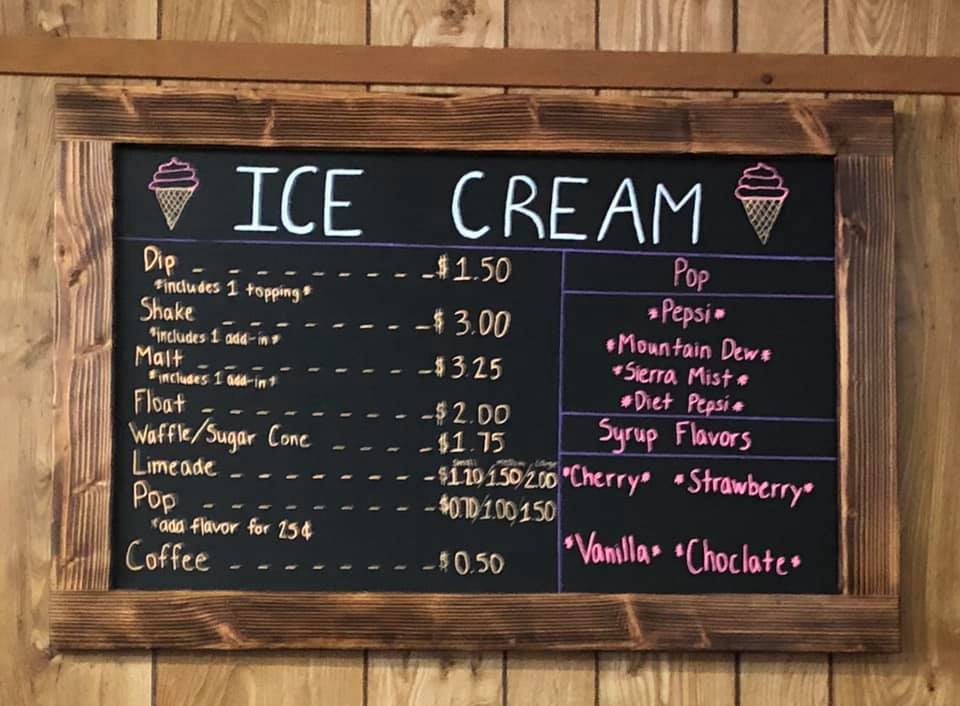 ICE CREAM
Dip - - - - - - - - - $1.50
*includes 1 topping*
Shake - - - - - - - - $3.00
*includes 1 add-in*
Malt - - - - - - - - - $3.25
*includes 1 add-in*
Float - - - - - - - - - $2.00
Waffle/Sugar Cone - - - - $1.75
Small Medium Large
Limeade - - - - - - - - $1.10/1.50/2.00
Pop - - - - - - - - - $0.70/1.00/1.50
*add flavor for 25¢
Coffee - - - - - - - - $0.50
Pop
*Pepsi*
*Mountain Dew*
*Sierra Mist*
*Diet Pepsi*
Syrup Flavors
*Cherry* *Strawberry*
*Vanilla* *Choclate*